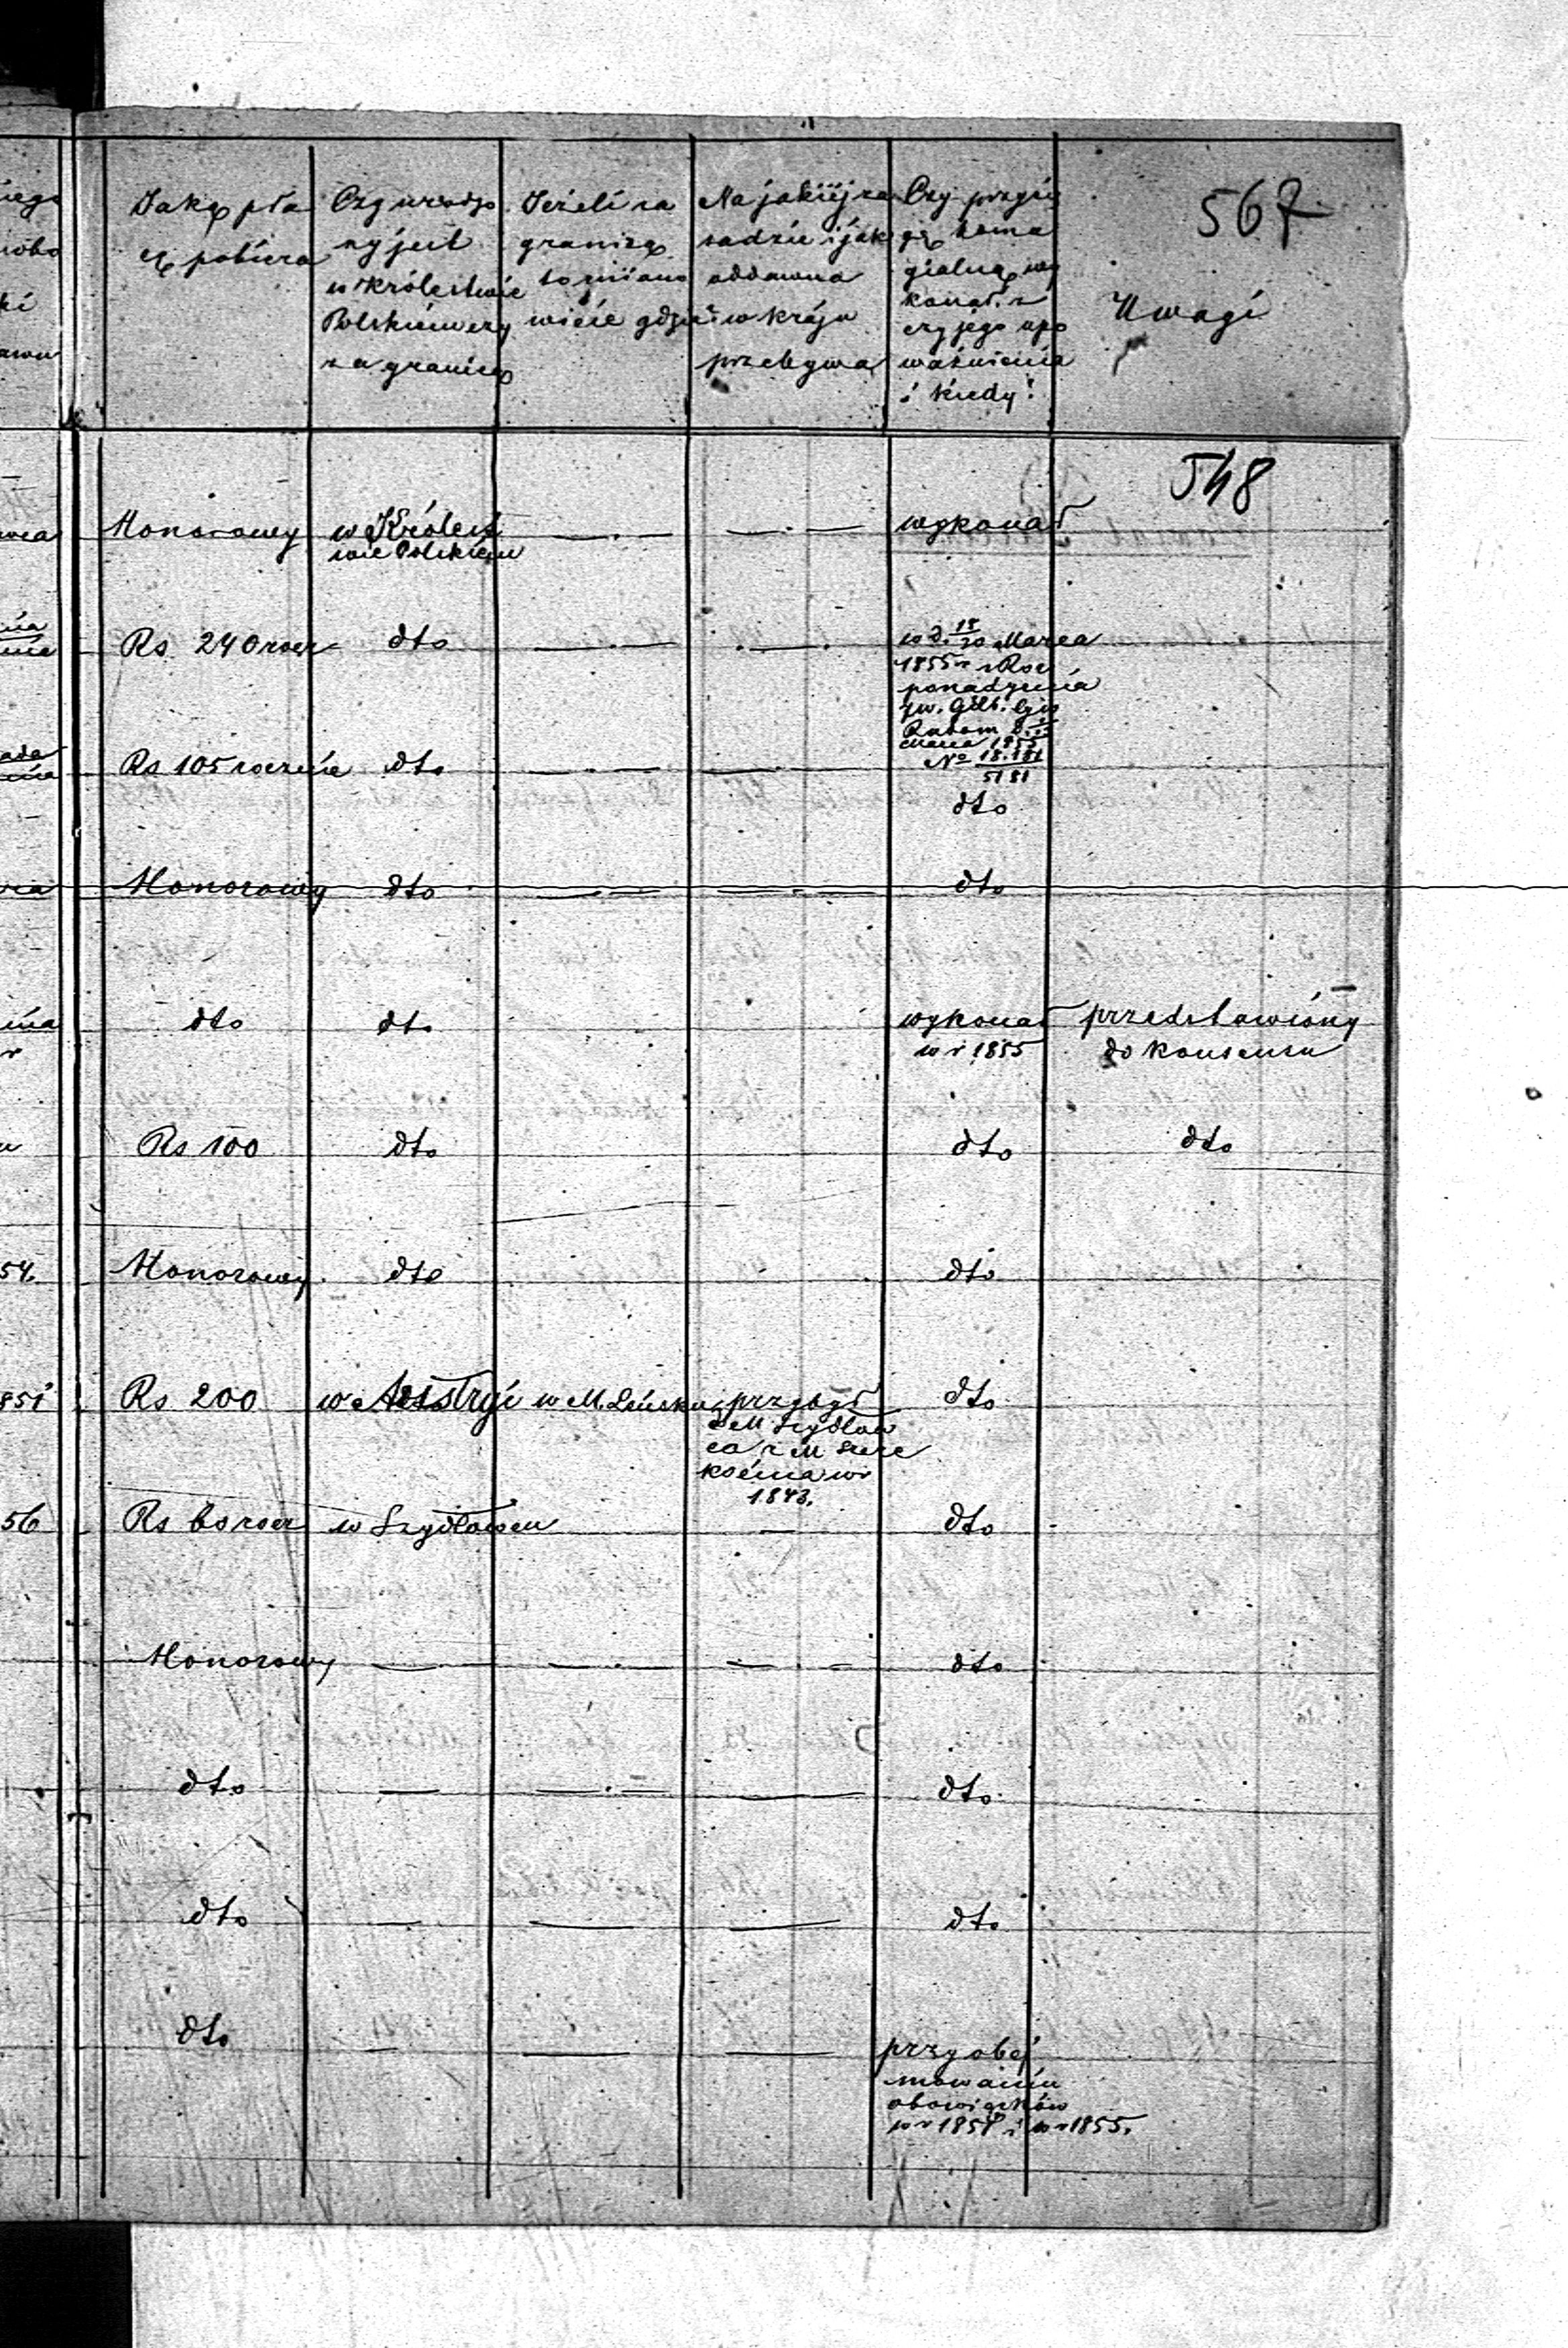 567
Jaką pła
cę pobiera
Czy urodzo
ny jest
w Królestwie
Polskiém czy
za granicą
Jeżeli za
granicą
to mianο
wicie gdzie
Na jakiéj za
sadzie i jak
oddawna
w kraju
przebywa
Czy przysię
gę homa
gialną wy
konał, z
czyjego upo
ważnienia
i kiedy?
Uwagi
548
Honorowy
w Królest
wie Polskiem
wykonał
Rs 240 rocz
dto
w d. 18/30 Marca
1855 r z Roz
ponadzenia
Radom
Marca 1855
No 18.181
5181
Rs 105 rocznie
dto
dto
Honorowy
dto
dto
dto
dto
wykonał
w r 1855
przedstawiony
do konsensu
Rs 100
dto
dto
dto
Honorowy
dto
dto
54.
851
Rs 200
w Austryi
w M.
przybył
do M Szydłow
ca z M
w r
1843.
dto
56
Rs 60 rocz
w Szydłowcu
dto
Honorowy
dto
dto
dto
dto
dto
dto
przy obej
mowaniu
obowiązków
w r 1851 i w r 1855.